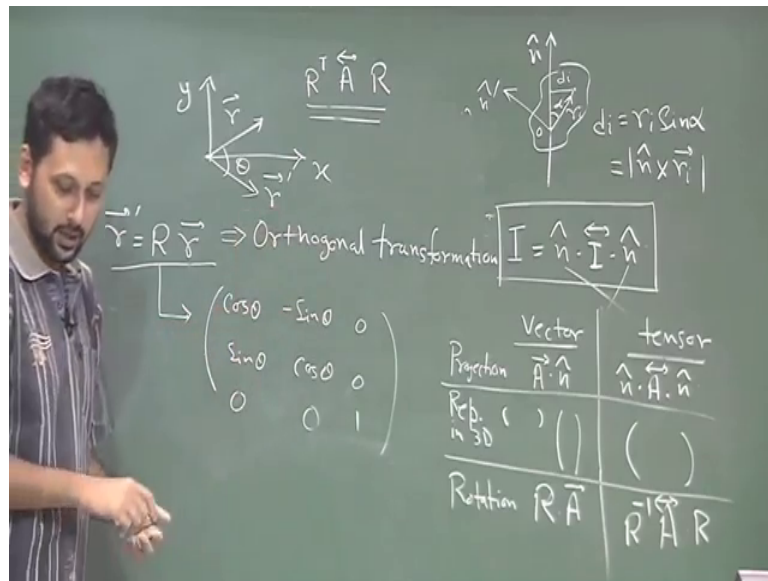 y
r⃗
θ
r⃗'
x
Rᵀ A⃡ R
n̂
n̂'
dᵢ
rᵢ
o
dᵢ = rᵢ Sinα
= |n̂ × r⃗ᵢ|
r⃗' = R r⃗ ⇒ Orthogonal transformation
I = n̂ · I⃡ · n̂
Cosθ -Sinθ 0
Sinθ Cosθ 0
0 0 1
Vector tensor
Projection A⃗·n̂ n̂·A⃡·n̂
Rep. in 3D ( ) ( ) ( )
Rotation R A⃗ R⁻¹ A⃡ R